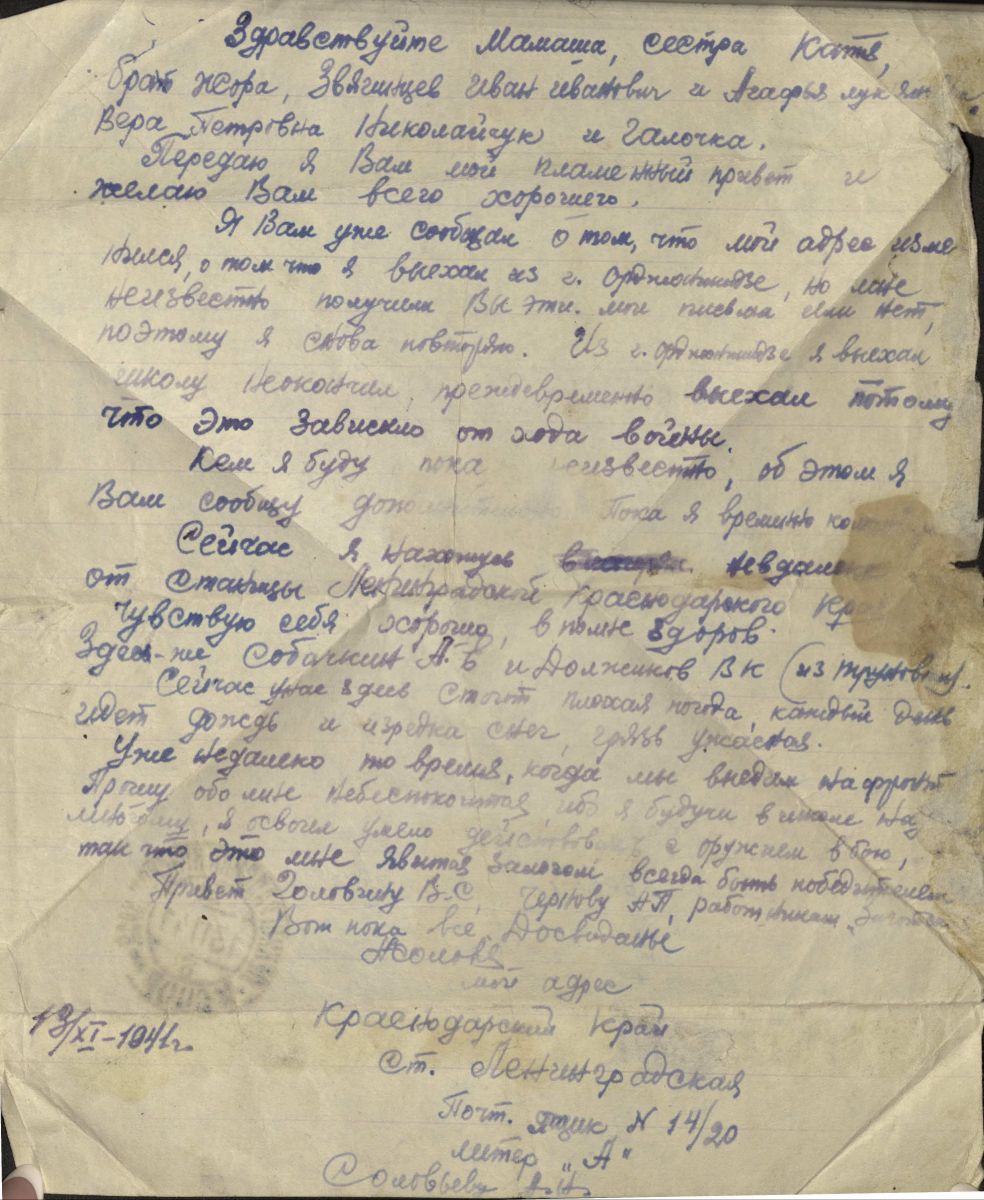 Здравствуйте Мамаша, сестра Катя,
брат жора, Звягинцев иван иванович и Агафья лукян
Вера Петровна Николайчук и Галочка.
Передаю я Вам мой пламенный привет и
желаю Вам всего хорошего.
Я Вам уже сообщал о том, что мой адрес изме
нился, о том что я выехал из г. орджоникидзе, но мне
неизвестно получили Вы эти мои письма или нет,
поэтому я снова повторяю. Из г. орджоникидзе я выехал
школу неокончил, преждевременно выехал потому
что это зависило от хода войны.
Кем я буду пока неизвестно, об этом я
Вам сообщу дополнительно Пока я времено
Сейчас я нахожусь невдалеке
от станицы Ленинградской Краснодарского Края
Чувствую себя хорошо, вполне здоров.
Здесь-же Собачкин А. В и Должиков В К (из
Сейчас уже здесь стоит плохая погода, каждый день
идет дождь и изредка снег, грязь ужасная.
Уже недалеко то время, когда мы выедим на фронт
Прошу обо мне небеспокоится, ибо я будучи в школе на
многому, я освоил умело действовать с оружием в бою,
так что это мне явится залогом всегда быть победителем
Привет Головчину В-С, Чернову АП, работникам
Вот пока все Досвиданье
мой адрес
13/XI-1941г.
Краснодарский Край
ст. Ленинградская
Почт. ящик N 14/20
литер "А"
Соловьеву